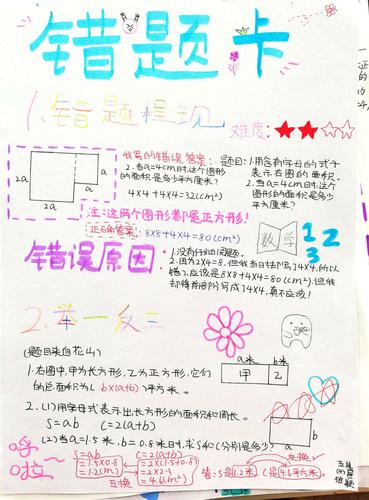 错题卡
1.错题呈现
难度:
我写的错误答案:
2.当a=4cm时,这个图形
的面积是多少平方厘米?
4×4+4×4=32(cm²)
题目:1.用含有字母的式子
表示右图的面积。
2.当a=4cm时,这个图
形的面积是多少
平方厘米?
2a
a
a
2a
注:这两个图形都是正方形!
正确的答案:8×8+4×4=80(cm²)
数学
1 2
3
错误原因:
1.没有仔细阅读题。
2.因为2×4=8,但我当时却写了4×4,所以
错了,应该是8×8+4×4=80(cm²),但我
却将前部分写成了4×4,真不应该!
2.举一反三
(题目来自花山)
1.右图中,甲为长方形,乙为正方形,它们
的总面积为( b×(a+b) )平方米。
a米 b米
甲 乙
2.(1)用字母式表示出长方形的面积和周长。
S=ab C=2(a+b)
(2)当a=1.5米,b=0.8米时,求S和C分别是多少?
S=ab
=1.5×0.8
=1.2(m²)
C=2(a+b)
=2×(1.5+0.8)
=2×2.3
=4.6(m²)
互换
互换
答:S是1.2米,C是4.6平方米。
a
b
哼
啦